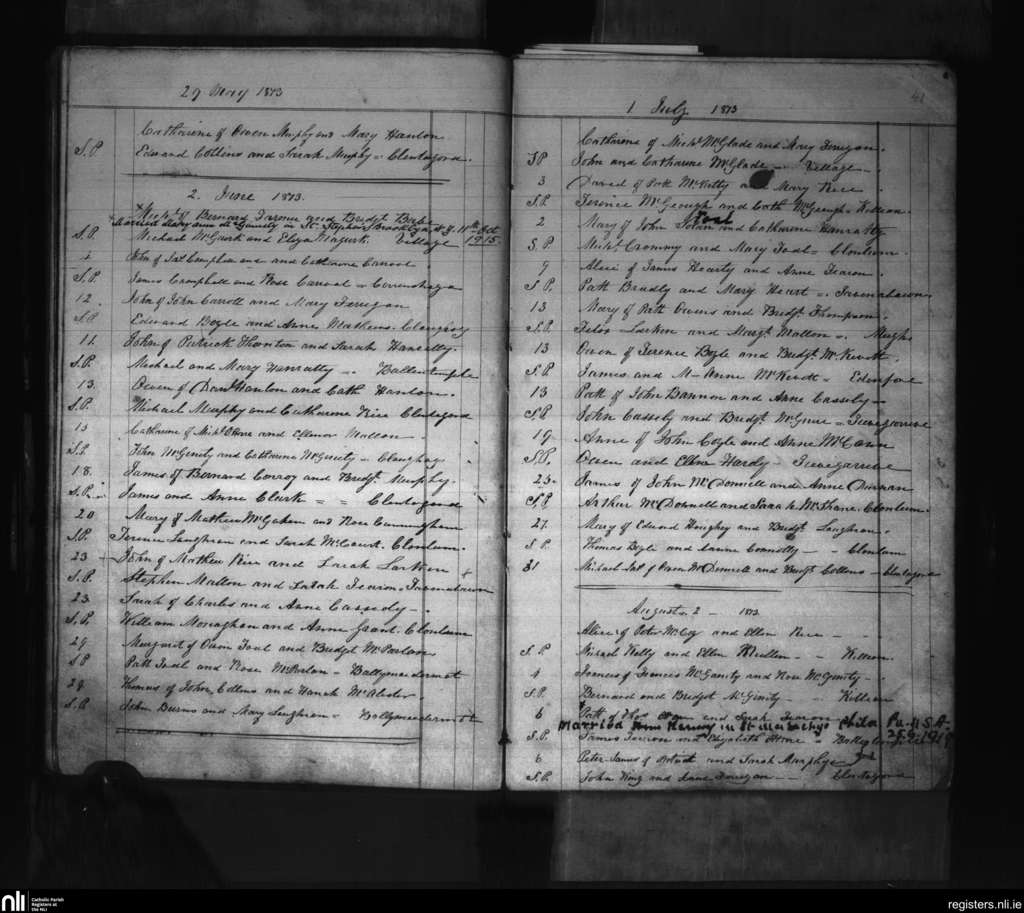 29 May 1873
Catharine of Owen Murphy and Mary Hanlon
S.P. Edward Collins and Sarah Murphy = Clontagora.
2. June 1873.
Michl of Bernard and Bridgt Boyle
Married Mary Anne McGinnity in St. Stephen's Brooklyn N.Y. 11th Oct 1915.
S.P. Michael McGuirk and Eliza Village
4 John of Pat Campbell and Catharine Carroll
S.P. James Campbell and Rose Carroll =
12. John of John Carroll and Mary Finegan
S.P. Edward Boyle and Anne Mathews. Cloughoge
11. John of Patrick Thornton and Sarah Hanratty.
S.P. Michael and Mary Hanratty .. Ballintemple
13. Owen of Danl Hanlon and Cath Hanlon.
S.P. Michael Murphy and Catharine Rice Clontagora
15 Catharine of Michl and Ellenor Mallon
S.P. John McGinity and Catharine McGinity = Cloughoge
18. James of Bernard Conroy and Bridgt Murphy.
S.P. James and Anne Clark = = Clontagora
20 Mary of Mathew McGahan and Rose Cunningham
S.P. Terence Loughran and Sarah McCourt. Clonlum.
23 John of Mathew Rice and Sarah Larkin
S.P. Stephen Mallon and Sarah
23 Sarah of Charles and Anne Cassedy
S.P. William Monaghan and Anne Grant. Clonlum
29 Margaret of Owen Toal and Bridget McParlan
S.P. Patk Toal and Rose McParlan = Ballymacdermot
29. Thomas of John Collins and Hanah
S.P. John Burns and Mary Loughran = Ballymacdermott
41
1 July 1873
Catharine of Michl McGlade and Mary Finegan.
S.P. John and Catharine McGlade .. Village
3 David of Patk and Mary Rice
S.P. Terence McGeough and Cath McGeough = Killeen
Toal
2 Mary of John and Catharine Hanratty
S.P. Michl Crommy and Mary Toal = Clonlum.
9 Alice of James Hearty and Anne Fearon.
S.P. Patk Bradly and Mary Heart =
13 Mary of Patk Owens and Bridgt Thompson.
S.P. Peter Larkin and Margt Mallon = Meigh
13 Owen of Terence Boyle and Bridgt McKevitt
S.P. James and M Anne McKevitt = Edenfore
13 Patk of John Bannon and Anne Cassely
S.P. John Cassely and Bridgt =
19 Anne of John Coyle and Anne McCann
S.P. Owen and Ellen Hardy
23. James of John McDonnell and Anne
S.P. Arthur McDonnell and Sarah McShane. Clonlum.
27 Mary of Edward Haughey and Bridgt Loughran
S.P. Thomas Boyle and Connolly - - Clonlum
31 Michael of Owen McDonnell and Bridgt Collins - Clontagora
August 2 - 1873
Alice of Peter McCoy and Ellen Rice
S.P. Michael Kelly and Ellen - - Killeen
4 Francis of Francis McGinity and Rose McGinity
S.P. Bernard and Bridget McGinity - Killeen
6 Patk of Thos and Sarah Fearon
Married Anne in St Malachy's Phila Pa. U.S.A. 25.9.1919
S.P. James Fearon and Elizabeth
6 Peter James of and Sarah Murphy
S.P. John King and Finegan - - Clontagora
nli
Catholic Parish
Registers at
the NLI
registers.nli.ie